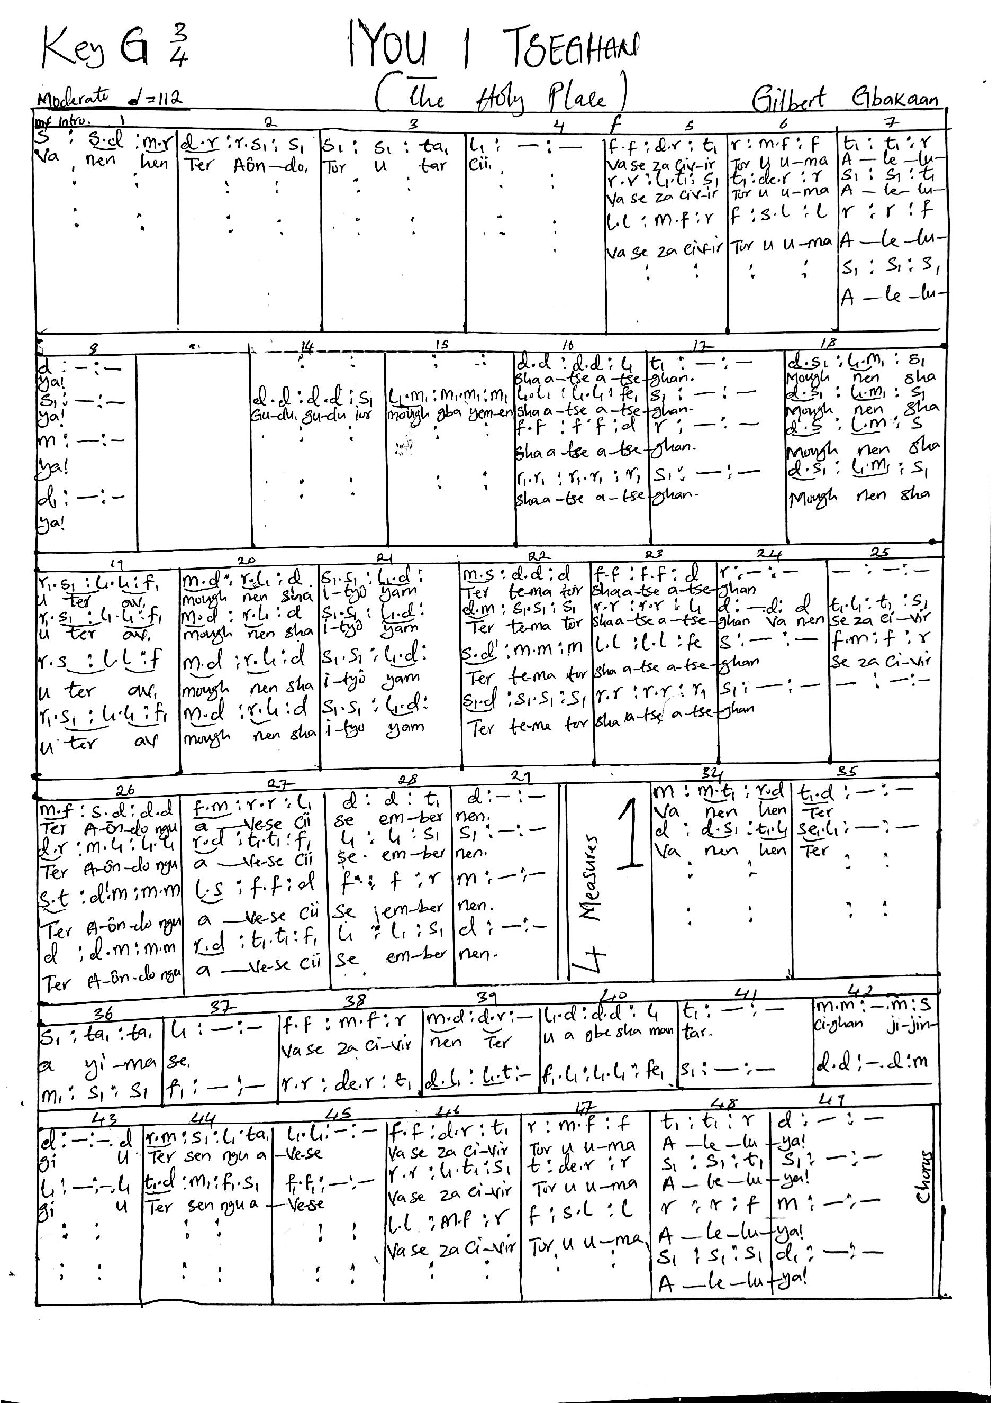 Key G 3/4 IYOU I TSEGHAN
(The Holy Place)
Moderate d=112 Gilbert Gbakaan
mf Intro. 1 2 3 4 f 5 6 7
s : s.d : m.r d.r : r.s₁ : s₁ s₁ : s₁ : ta₁ l₁ : — : — f.f : d.r : t₁ r : m.f : f t₁ : t₁ : r
Va nen hen Ter Aôn-do, Tor u tar Cii. Va se za civ-ir Tor u u-ma A – le – lu-
r.r : l₁.t₁ : s₁ t₁ : de.r : r s₁ : s₁ : t₁
Va se za civ-ir Tor u u-ma A – le – lu-
l.l : m.f : r f : s.l : l r : r : f
Va se za civ-ir Tor u u-ma A – le – lu-
s₁ : s₁ : s₁
A – le – lu-
8 14 15 16 17 18
d : — : — d.d : d.d : l₁ t₁ : — : — d.s₁ : l₁.m₁ : s₁
ya! sha a-tse a-tse-ghan. Mough nen sha
s₁ : — : — d.d : d.d : s₁ l₁.m₁ : m₁.m₁ : m₁ l₁.l₁ : l₁.l₁ : fe₁ s₁ : — : — d.s₁ : l₁.m₁ : s₁
ya! Gu-du, gu-du iur mough gba yem-en sha a-tse a-tse-ghan. Mough nen sha
m : — : — f.f : f.f : d r : — : — d.s : l.m : s
ya! sha a-tse a-tse-ghan. Mough nen sha
d₁ : — : — r₁.r₁ : r₁.r₁ : r₁ s₁ : — : — d.s₁ : l₁.m₁ : s₁
ya! sha a-tse a-tse-ghan. Mough nen sha
19 20 21 22 23 24 25
r₁.s₁ : l₁.l₁ : f₁ m.d : r.l₁ : d s₁.s₁ : l₁.d : m.s : d.d : d f.f : f.f : d r : — : — — : — : —
u ter av, mough nen sha i-tyô yam Ter te-ma tor sha a-tse a-tse-ghan
r₁.s₁ : l₁.l₁ : f₁ m.d : r.l₁ : d s₁.s₁ : l₁.d : d.m : s₁.s₁ : s₁ r.r : r.r : l₁ d : — d : d t₁.l₁ : t₁ : s₁
u ter av, mough nen sha i-tyô yam Ter te-ma tor sha a-tse a-tse-ghan Va nen se za ci-vir
r.s : l.l : f m.d : r.l₁ : d s₁.s₁ : l₁.d : s.d : m.m : m l.l : l.l : fe s : — : — f.m : f : r
u ter av, mough nen sha i-tyô yam Ter te-ma tor sha a-tse a-tse-ghan se za ci-vir
r₁.s₁ : l₁.l₁ : f₁ m.d : r.l₁ : d s₁.s₁ : l₁.d : s₁.d : s₁.s₁ : s₁ r.r : r.r : r₁ s₁ : — : — — : — : —
u ter av mough nen sha i-tyô yam Ter te-ma tor sha a-tse a-tse-ghan
26 27 28 29 34 35
m.f : s.d : d.d f.m : r.r : l₁ d : d : t₁ d : — : — m : m.t₁ : r.d t₁.d : — : —
Ter A-ôn-do ngu a – Ve-se Cii se em-ber nen. Va nen hen Ter
d.r : m.l₁ : l₁.l₁ r.d : t₁.t₁ : f₁ l₁ : l₁ : s₁ s₁ : — : — d : d.s₁ : t₁.l₁ se₁.l₁ : — : —
Ter A-ôn-do ngu a – Ve-se Cii se em-ber nen. Va nen hen Ter
s.t : d.m : m.m l.s : f.f : d f : f : r m : — : —
Ter A-ôn-do ngu a – Ve-se Cii se em-ber nen.
d : d.m : m.m r.d : t₁.t₁ : f₁ l₁ : l₁ : s₁ d : — : —
Ter A-ôn-do ngu a – Ve-se Cii se em-ber nen.
4 Measures 1
36 37 38 39 40 41 42
s₁ : ta₁ : ta₁ l₁ : — : — f.f : m.f : r m.d : d.r : — l₁.d : d.d : l₁ t₁ : — : — m.m : — .m : s
a yi-ma se, Va se za ci-vir nen Ter u a gbe sha man tar. ci-ghan ji-jin-
m₁ : s₁ : s₁ f₁ : — : — r.r : de.r : t₁ d.s₁ : l₁.t₁ : — f₁.l₁ : l₁.l₁ : fe₁ s₁ : — : — d.d : — .d : m
43 44 45 46 47 48 49
d : — : — . d r.m : s₁ : l₁.ta₁ l₁.l₁ : — : — f.f : d.r : t₁ r : m.f : f t₁ : t₁ : r d : — : —
gi u Ter sen ngu a – Ve-se Va se za ci-vir Tor u u-ma A – le – lu – ya!
l₁ : — : — . l₁ t₁.d : m₁ : f₁.s₁ f₁.f₁ : — : — r.r : l₁.t₁ : s₁ t : de.r : r s₁ : s₁ : t₁ s₁ : — : —
gi u Ter sen ngu a – Ve-se Va se za ci-vir Tor u u-ma A – le – lu – ya!
l.l : m.f : r f : s.l : l r : r : f m : — : —
Va se za ci-vir Tor u u-ma, A – le – lu – ya!
s₁ : s₁ : s₁ d₁ : — : —
A – le – lu – ya!
Chorus